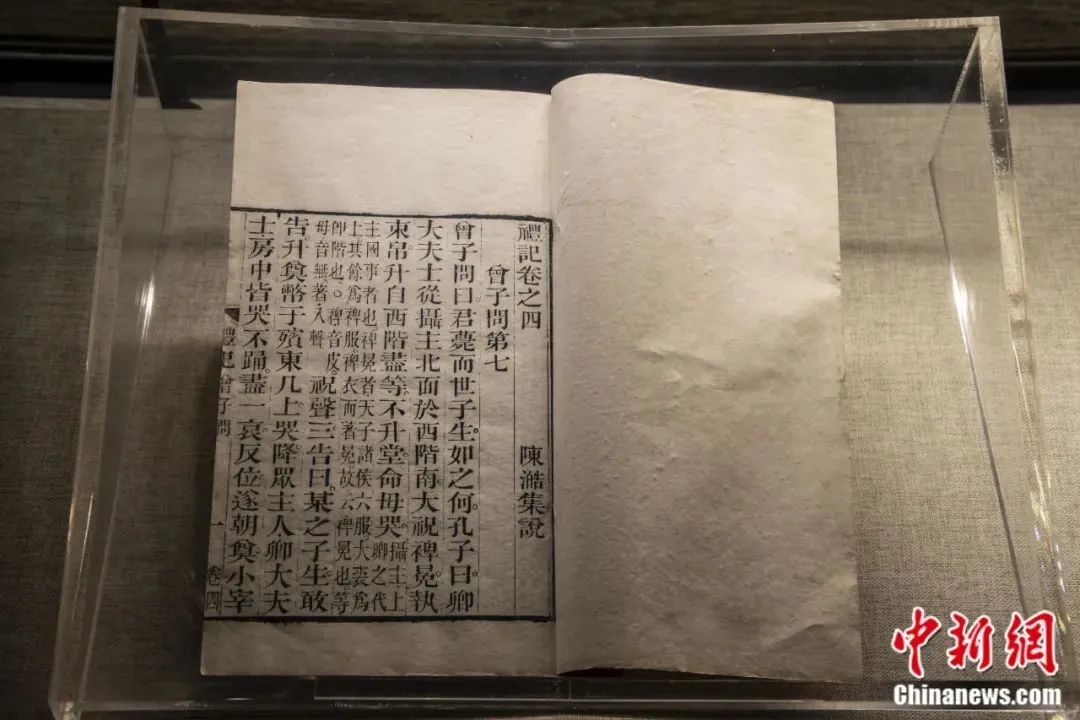 禮記卷之四 陳澔集說
曾子問第七
曾子問曰君薨而世子生如之何。孔子曰卿
大夫士從攝主北面於西階南大祝裨冕執
束帛升自西階盡等不升堂命毋哭。攝主上卿之代
主國事者也裨冕者天子諸侯六服大裘爲
上其餘爲裨服裨衣而著冕故云裨冕也等
卽階也。裨音皮
毋音無著入聲
祝聲三告曰某之子生敢
告升奠幣于殯東几上哭降眾主人卿大夫
士房中皆哭不踊盡一哀反位遂朝奠小宰
禮記 曾子問 一 卷四
中新網
Chinanews.com